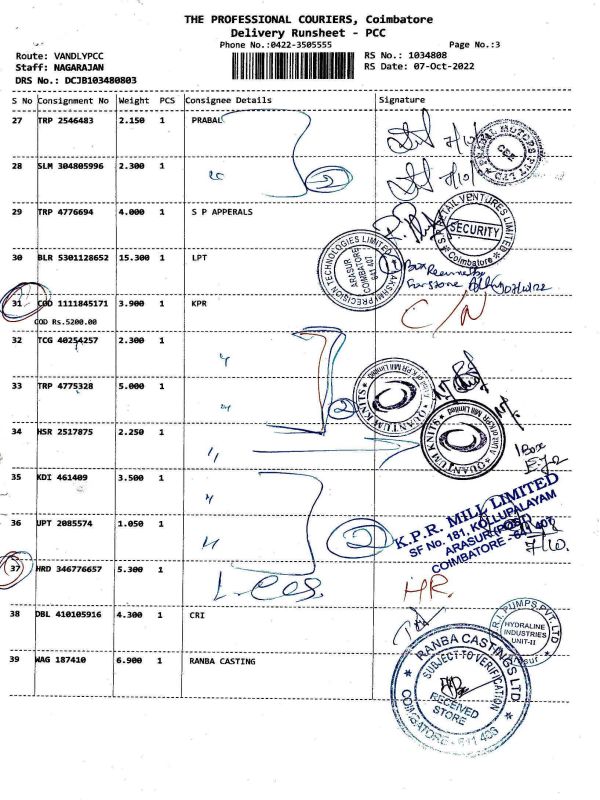 THE PROFESSIONAL COURIERS, Coimbatore
Delivery Runsheet - PCC
Phone No.:0422-3505555
Page No.:3
Route: VANDLYPCC
RS No.: 1034808
Staff: NAGARAJAN
RS Date: 07-Oct-2022
DRS No.: DCJB103480803
S No Consignment No Weight PCS Consignee Details Signature
27 TRP 2546483 2.150 1 PRABAL
28 SLM 304805996 2.300 1
2
29 TRP 4776694 4.000 1 S P APPERALS
SECURITY
Coimbatore
30 BLR 5301128652 15.300 1 LPT
ARASUR
COIMBATORE
641 407
1 Box
Received by
31 COD 1111845171 3.900 1 KPR
C/N
COD Rs.5200.00
32 TCG 40254257 2.300 1
33 TRP 4775328 5.000 1
2
QUANTUM KNITS
QUANTUM KNITS
34 HSR 2517875 2.250 1
1 Box
35 KDI 461409 3.500 1
36 UPT 2085574 1.050 1
2
K.P.R. MILL LIMITED
SF No. 181, KOLLUPALAYAM
ARASUR (POST)
COIMBATORE - 641 407
7/10.
37 HRD 346776657 5.300 1
Lees.
HR.
38 DBL 410105916 4.300 1 CRI
R.I. PUMPS PVT. LTD
HYDRALINE
INDUSTRIES
UNIT-II
39 WAG 187410 6.900 1 RANBA CASTING
RANBA CASTINGS LTD
SUBJECT TO VERIFICATION
RECEIVED
STORE